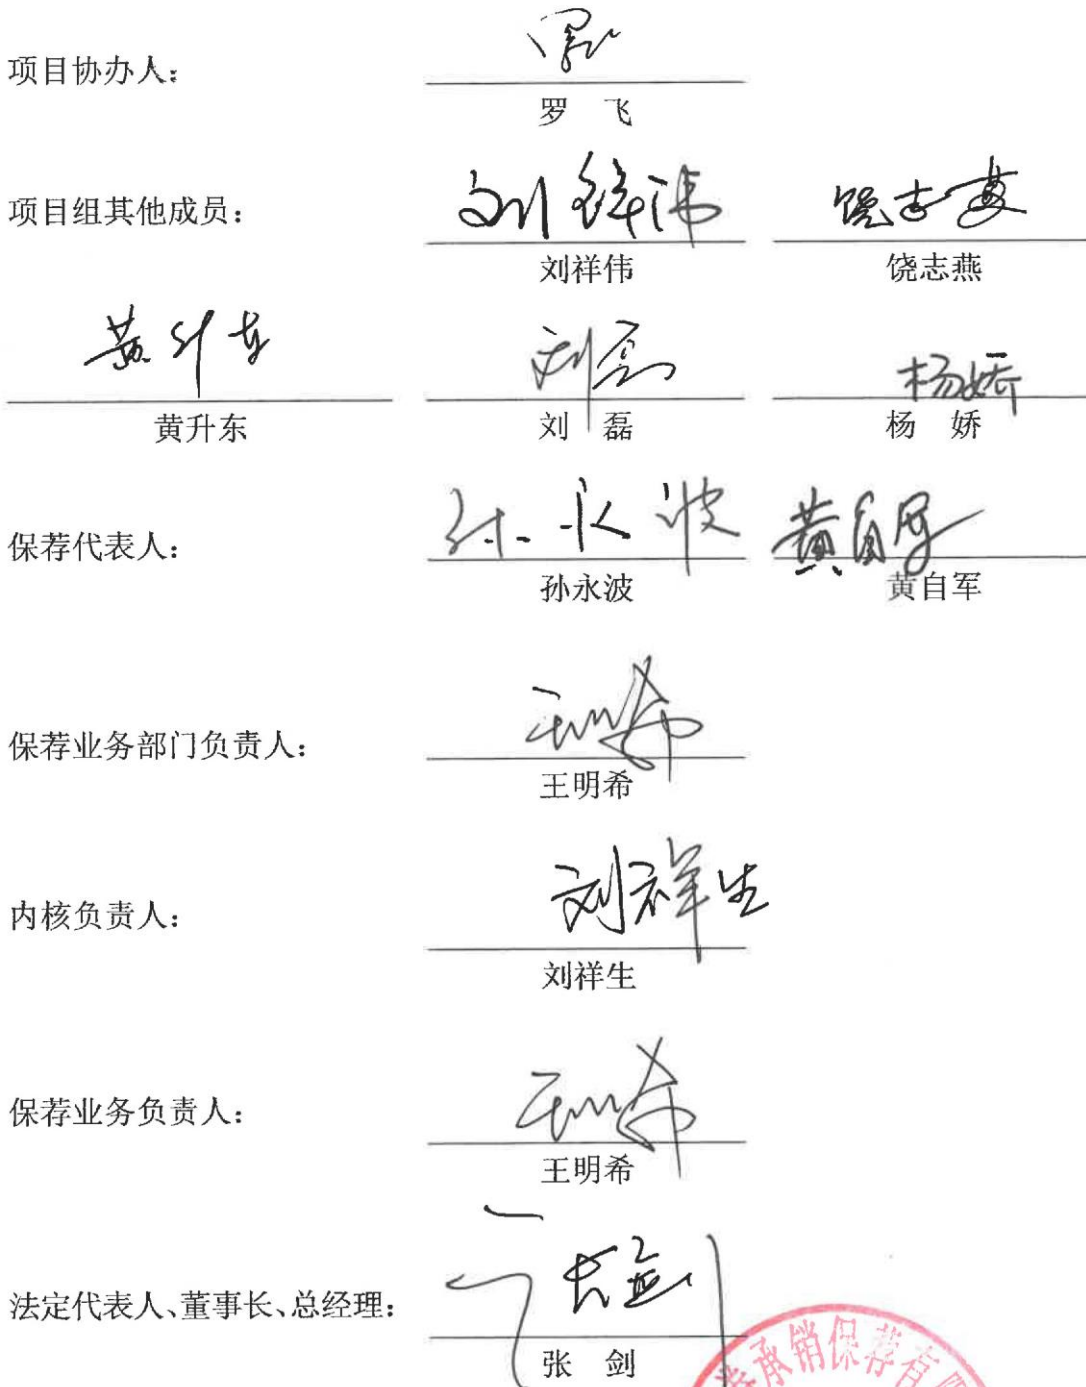 项目协办人：
罗飞
罗 飞
项目组其他成员：
刘祥伟 饶志燕
刘祥伟 饶志燕
黄升东 刘磊 杨娇
黄升东 刘 磊 杨 娇
保荐代表人：
孙永波 黄自军
孙永波 黄自军
保荐业务部门负责人：
王明希
王明希
内核负责人：
刘祥生
刘祥生
保荐业务负责人：
王明希
王明希
法定代表人、董事长、总经理：
张剑
张 剑
承销保荐有限